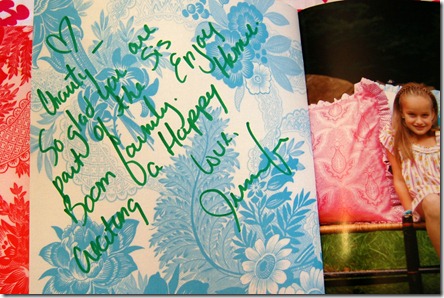 Charity -
So glad you are
part of the Sis
Boom family. Enjoy
Creating a Happy
Home.
Love,
Jennifer